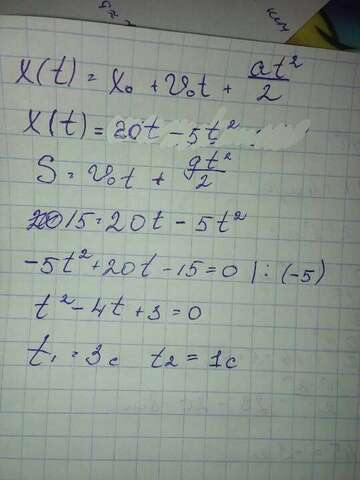 x(t) = x₀ + v₀t + at²/2
x(t) = 20t - 5t²
S = v₀t + gt²/2
15 = 20t - 5t²
-5t² + 20t - 15 = 0 | : (-5)
t² - 4t + 3 = 0
t₁ = 3c t₂ = 1c